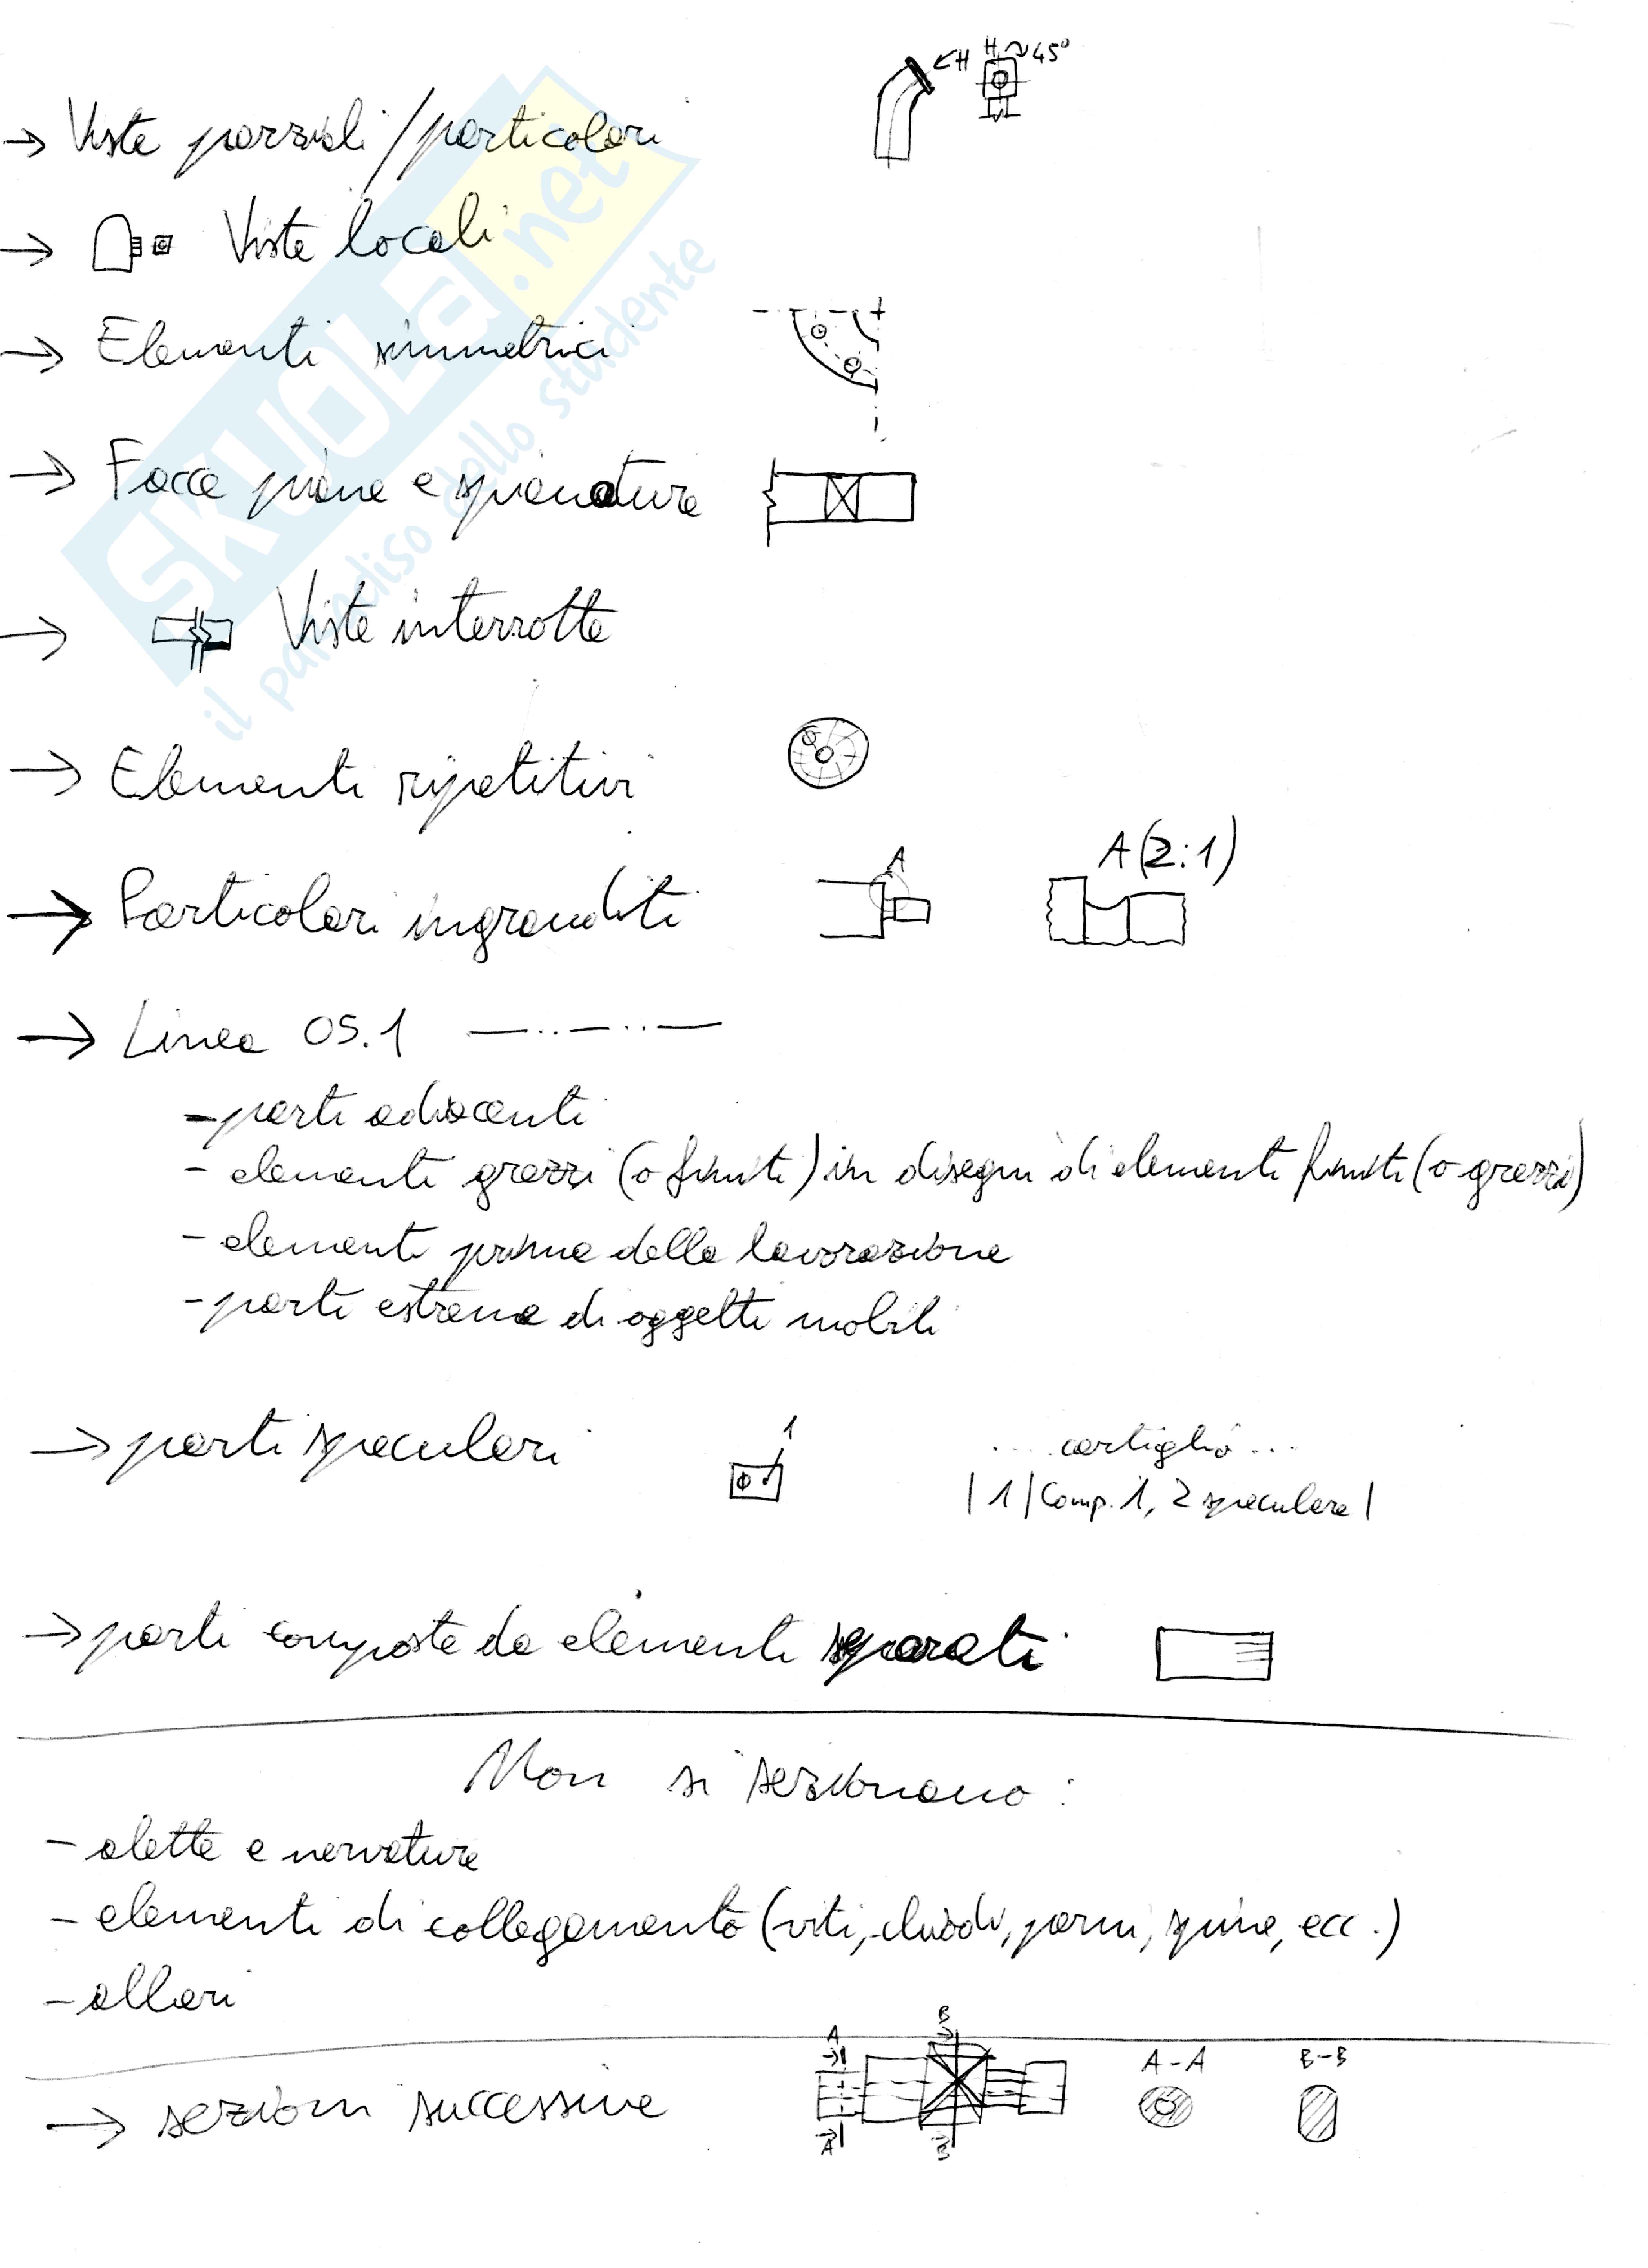 <H H ↷45°
→ Viste parziali/particolari
→ Viste locali
→ Elementi simmetrici
→ Facce piane e spianature
→ Viste interrotte
→ Elementi ripetitivi
→ Particolari ingranditi A A(2:1)
→ Linea 05.1
- parti adiacenti
- elementi grezzi (o finiti) in disegni di elementi finiti (o grezzi)
- elementi prima della lavorazione
- parti estreme di oggetti mobili
→ parti speculari 1 ...cartiglio...
| 1 | Comp. 1, 2 speculare |
→ parti composte da elementi separati
Non si sezionano:
- alette e nervature
- elementi di collegamento (viti, chiodi, perni, spine, ecc.)
- alberi
→ sezioni successive A A B B A-A B-B
SKUOLA.net
il paradiso dello studente